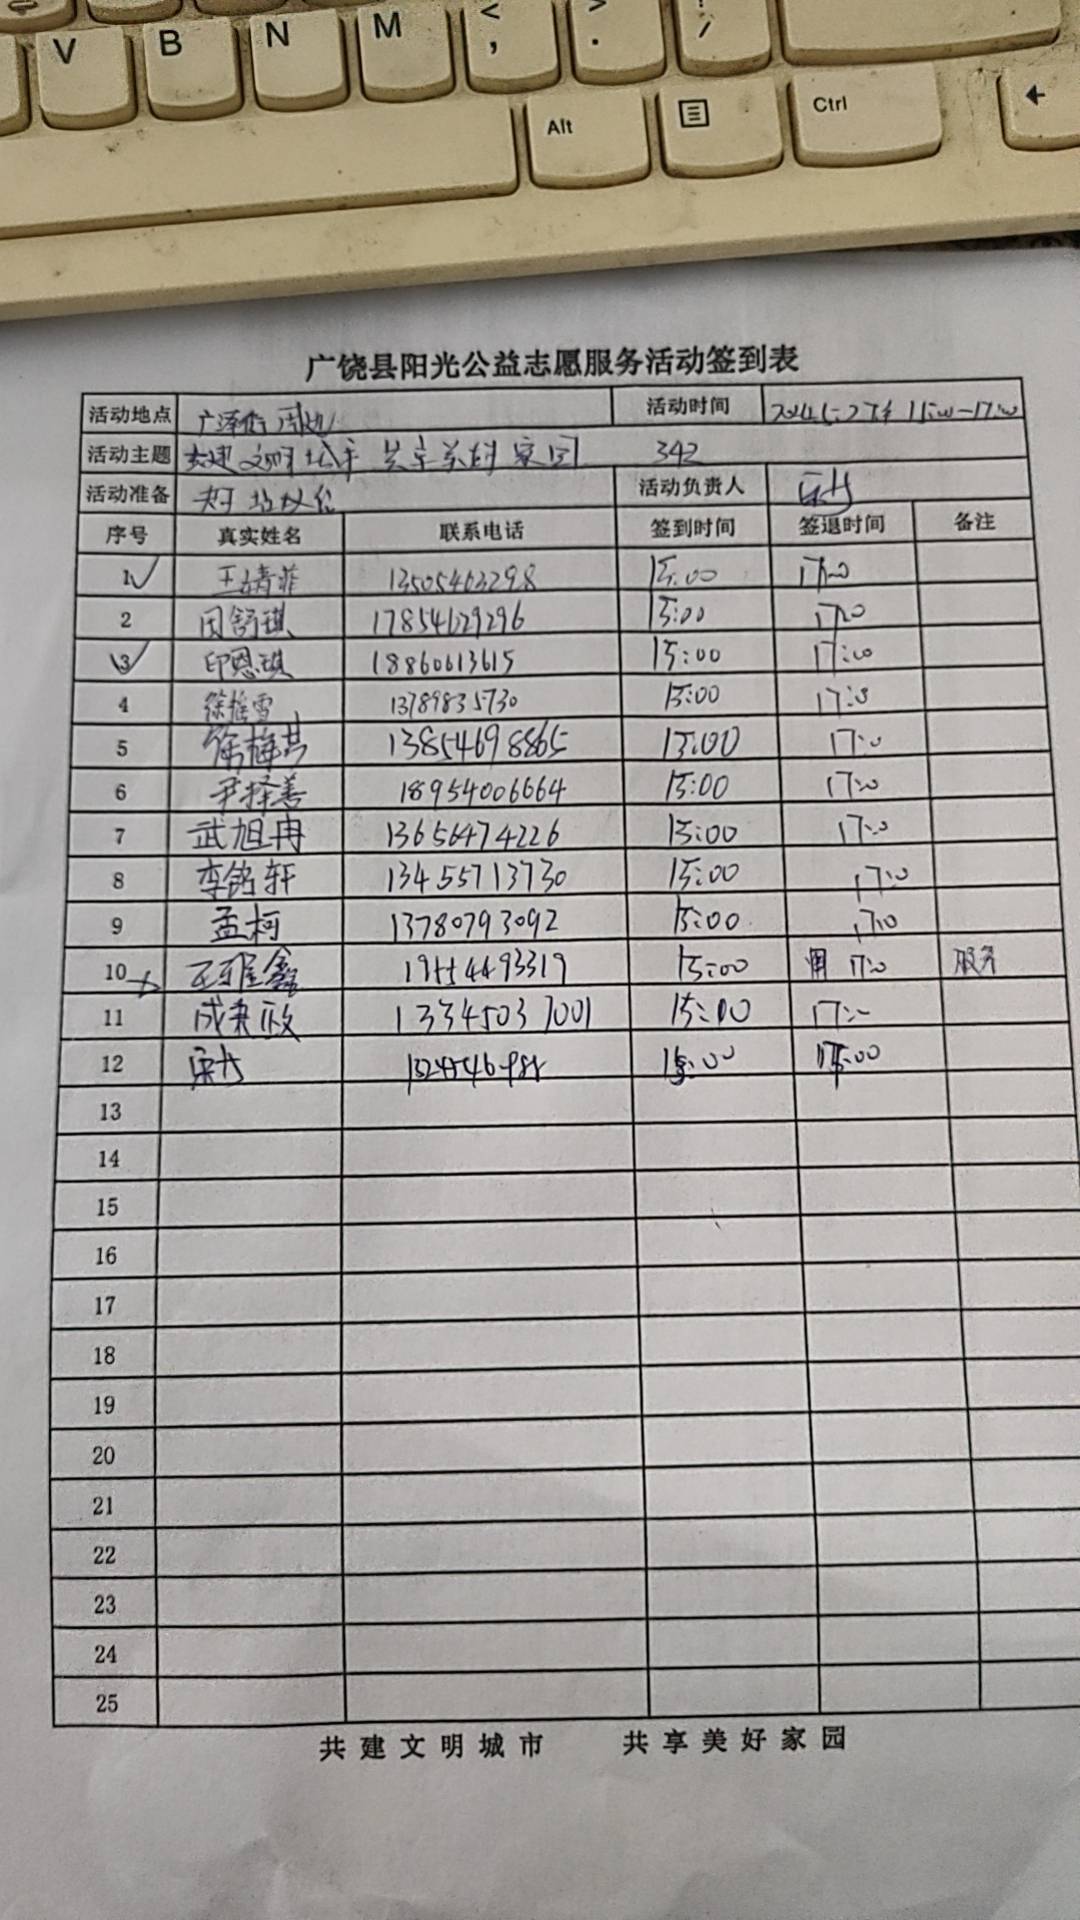 V B N M < , > . /
Alt Ctrl
广饶县阳光公益志愿服务活动签到表
活动地点 活动时间
活动主题 共建文明城市 共享美好家园 342
活动准备 活动负责人
序号 真实姓名 联系电话 签到时间 签退时间 备注
1 13505463298 15:00 17:00
2 周舒琪 17854629296 15:00 17:00
3 印恩琪 18860613615 15:00 17:00
4 13789835730 15:00 17:0
5 徐梅芸 13854698865 15:00 17:0
6 尹择善 18954006664 15:00 17:00
7 武旭冉 13656474226 15:00 17:0
8 李铭轩 13455713730 15:00 17:0
9 孟柯 13780793092 15:00 17:0
10 19554493319 15:00 17:0 服务
11 13345037001 15:00
12 15:00
13
14
15
16
17
18
19
20
21
22
23
24
25
共建文明城市 共享美好家园